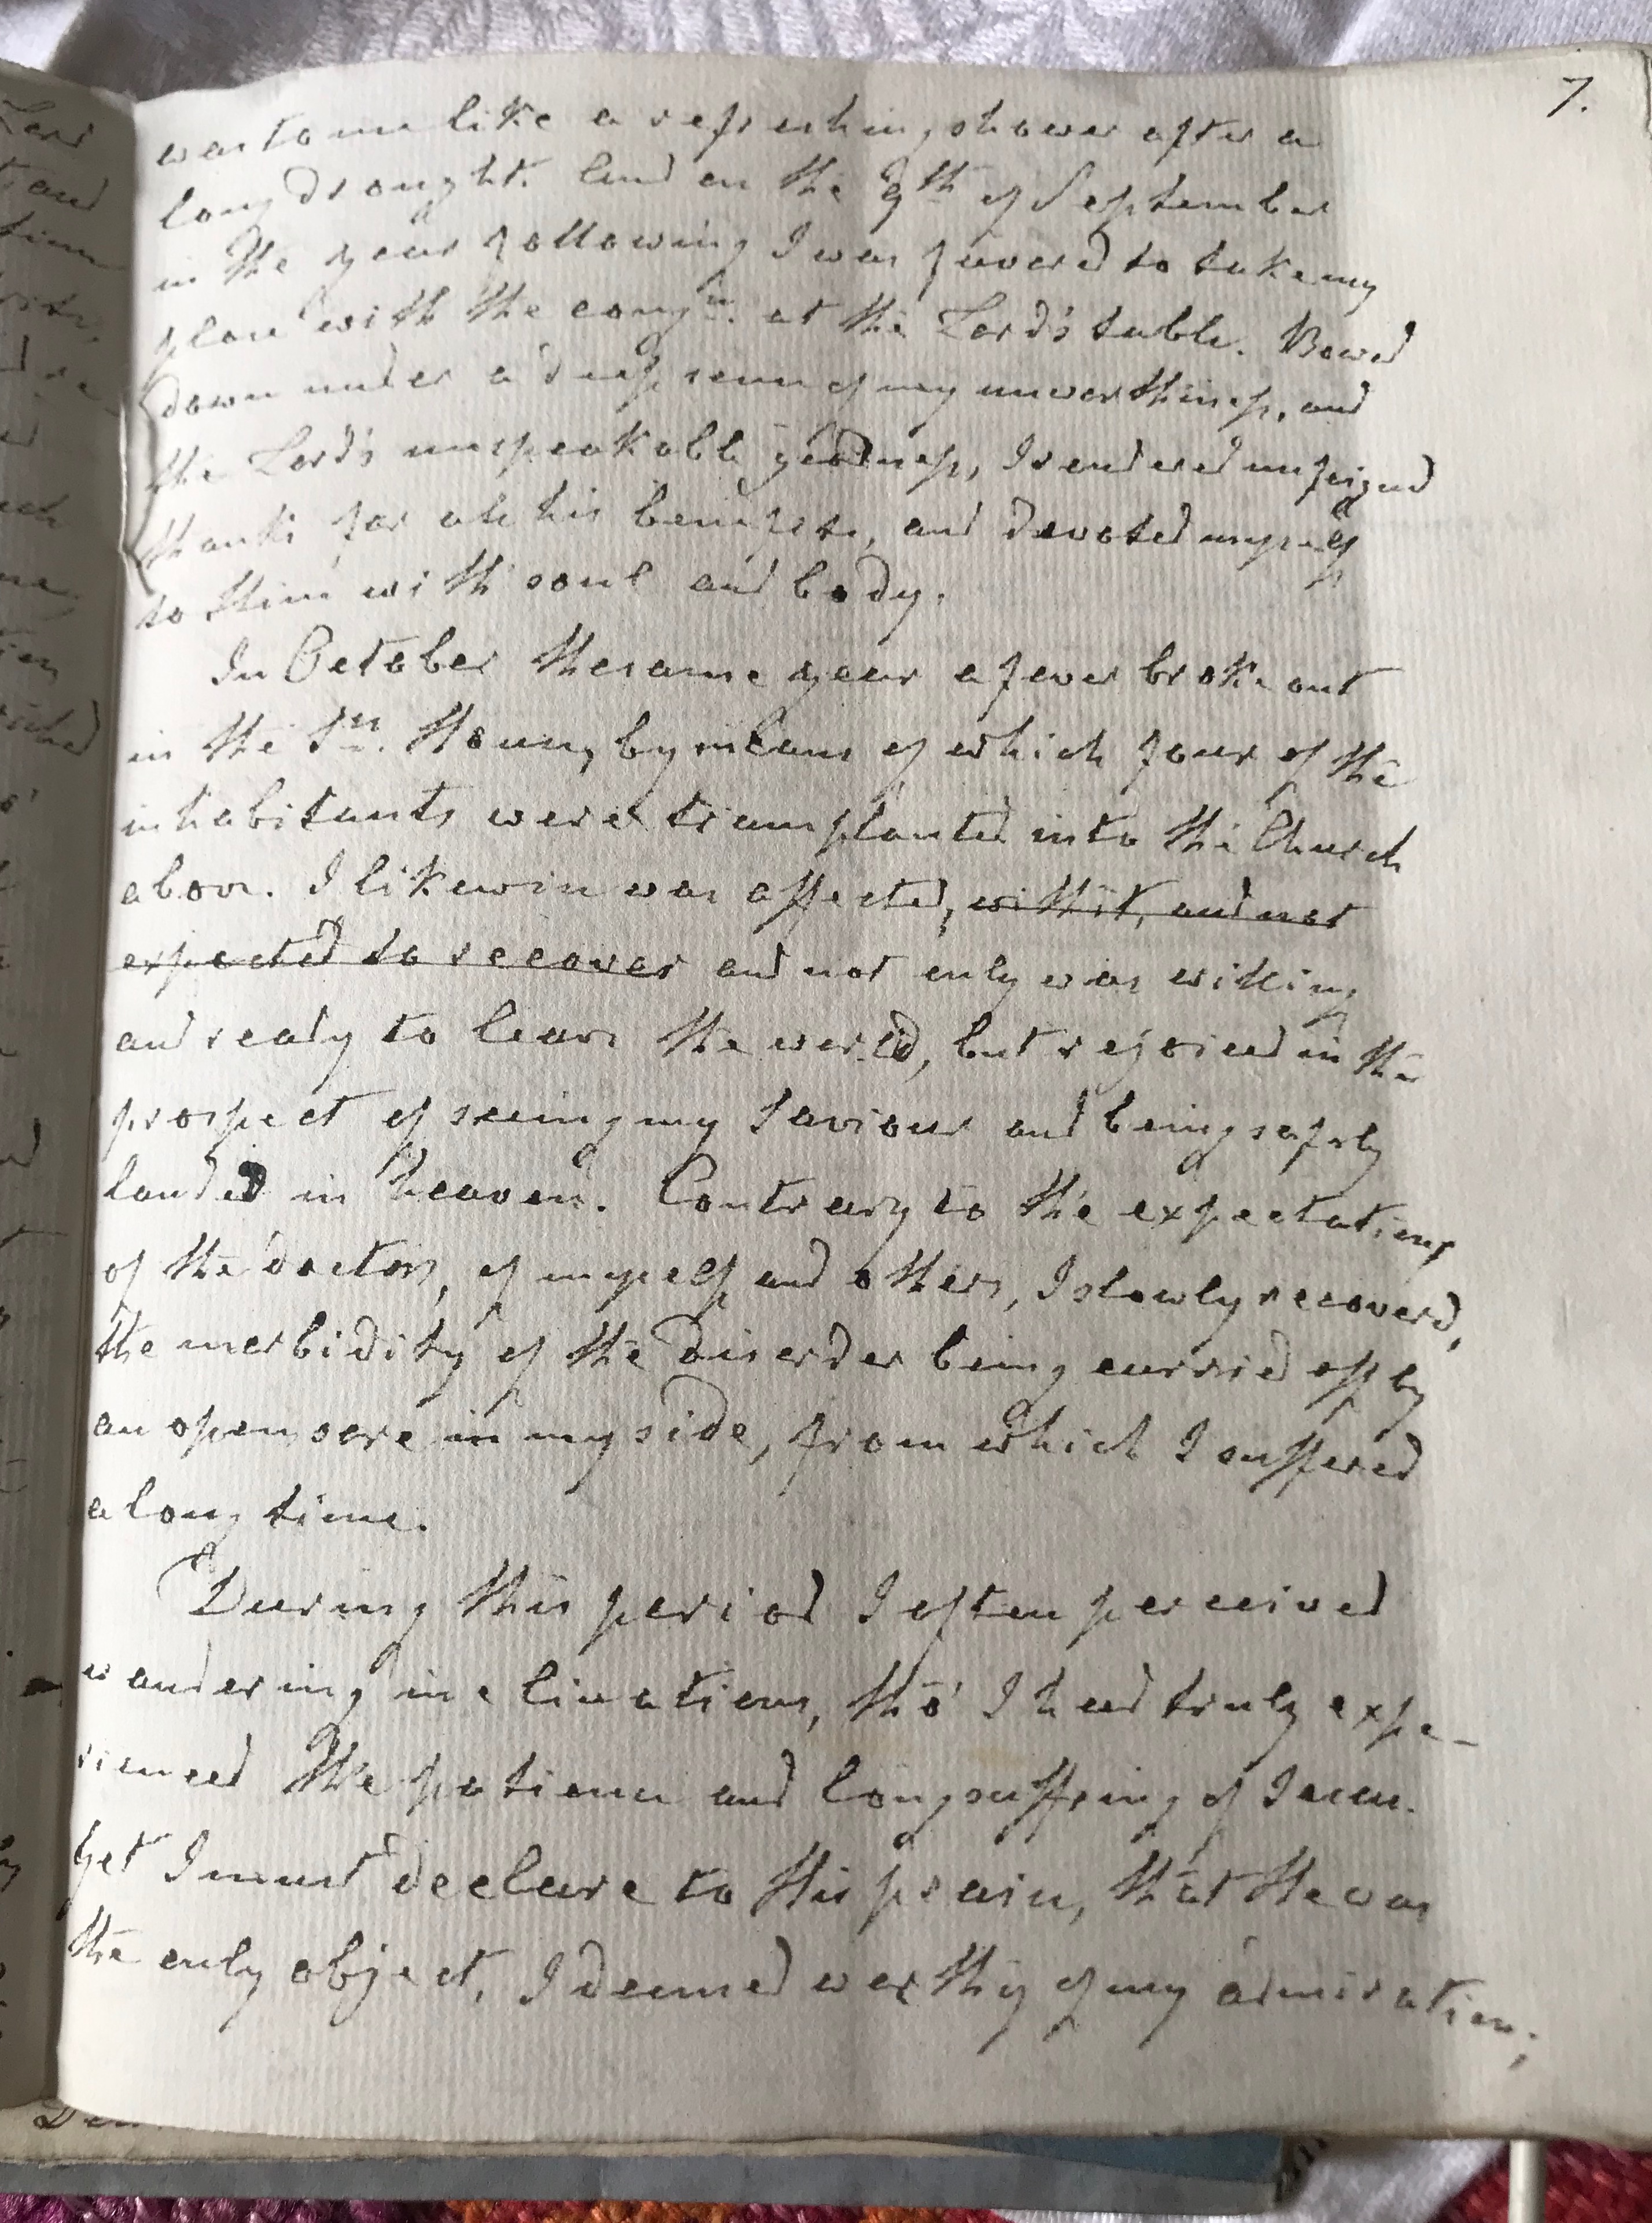 7.
was to me like a refreshing shower after a
long drought. And on the 9th of September
in the year following I was favored to take my
place with the congn. at the Lord's table. Bowed
down under a deep sense of my unworthiness, and
the Lord's unspeakable goodness, I rendered unfeigned
thanks for all his benefits, and devoted myself
to Him with soul and body.
In October the same year a fever broke out
in the Srs. House, by means of which four of the
inhabitants were transplanted into the Church
above. I likewise was affected, with it, and not
expected to recover and not only was willing
and ready to leave the world, but rejoiced in the
prospect of seeing my Saviour and being safely
landed in heaven. Contrary to the expectations
of the doctors, of myself and others, I slowly recoverd,
the morbidity of the disorder being carried off by
an open sore in my side, from which I suffered
a long time.
During this period I often perceived
wandering inclinations, tho' I had truly expe-
rienced the patience and longsuffring of Jesus.
Yet I must declare to His praise, that He was
the only object, I deemed worthy of my admiration;